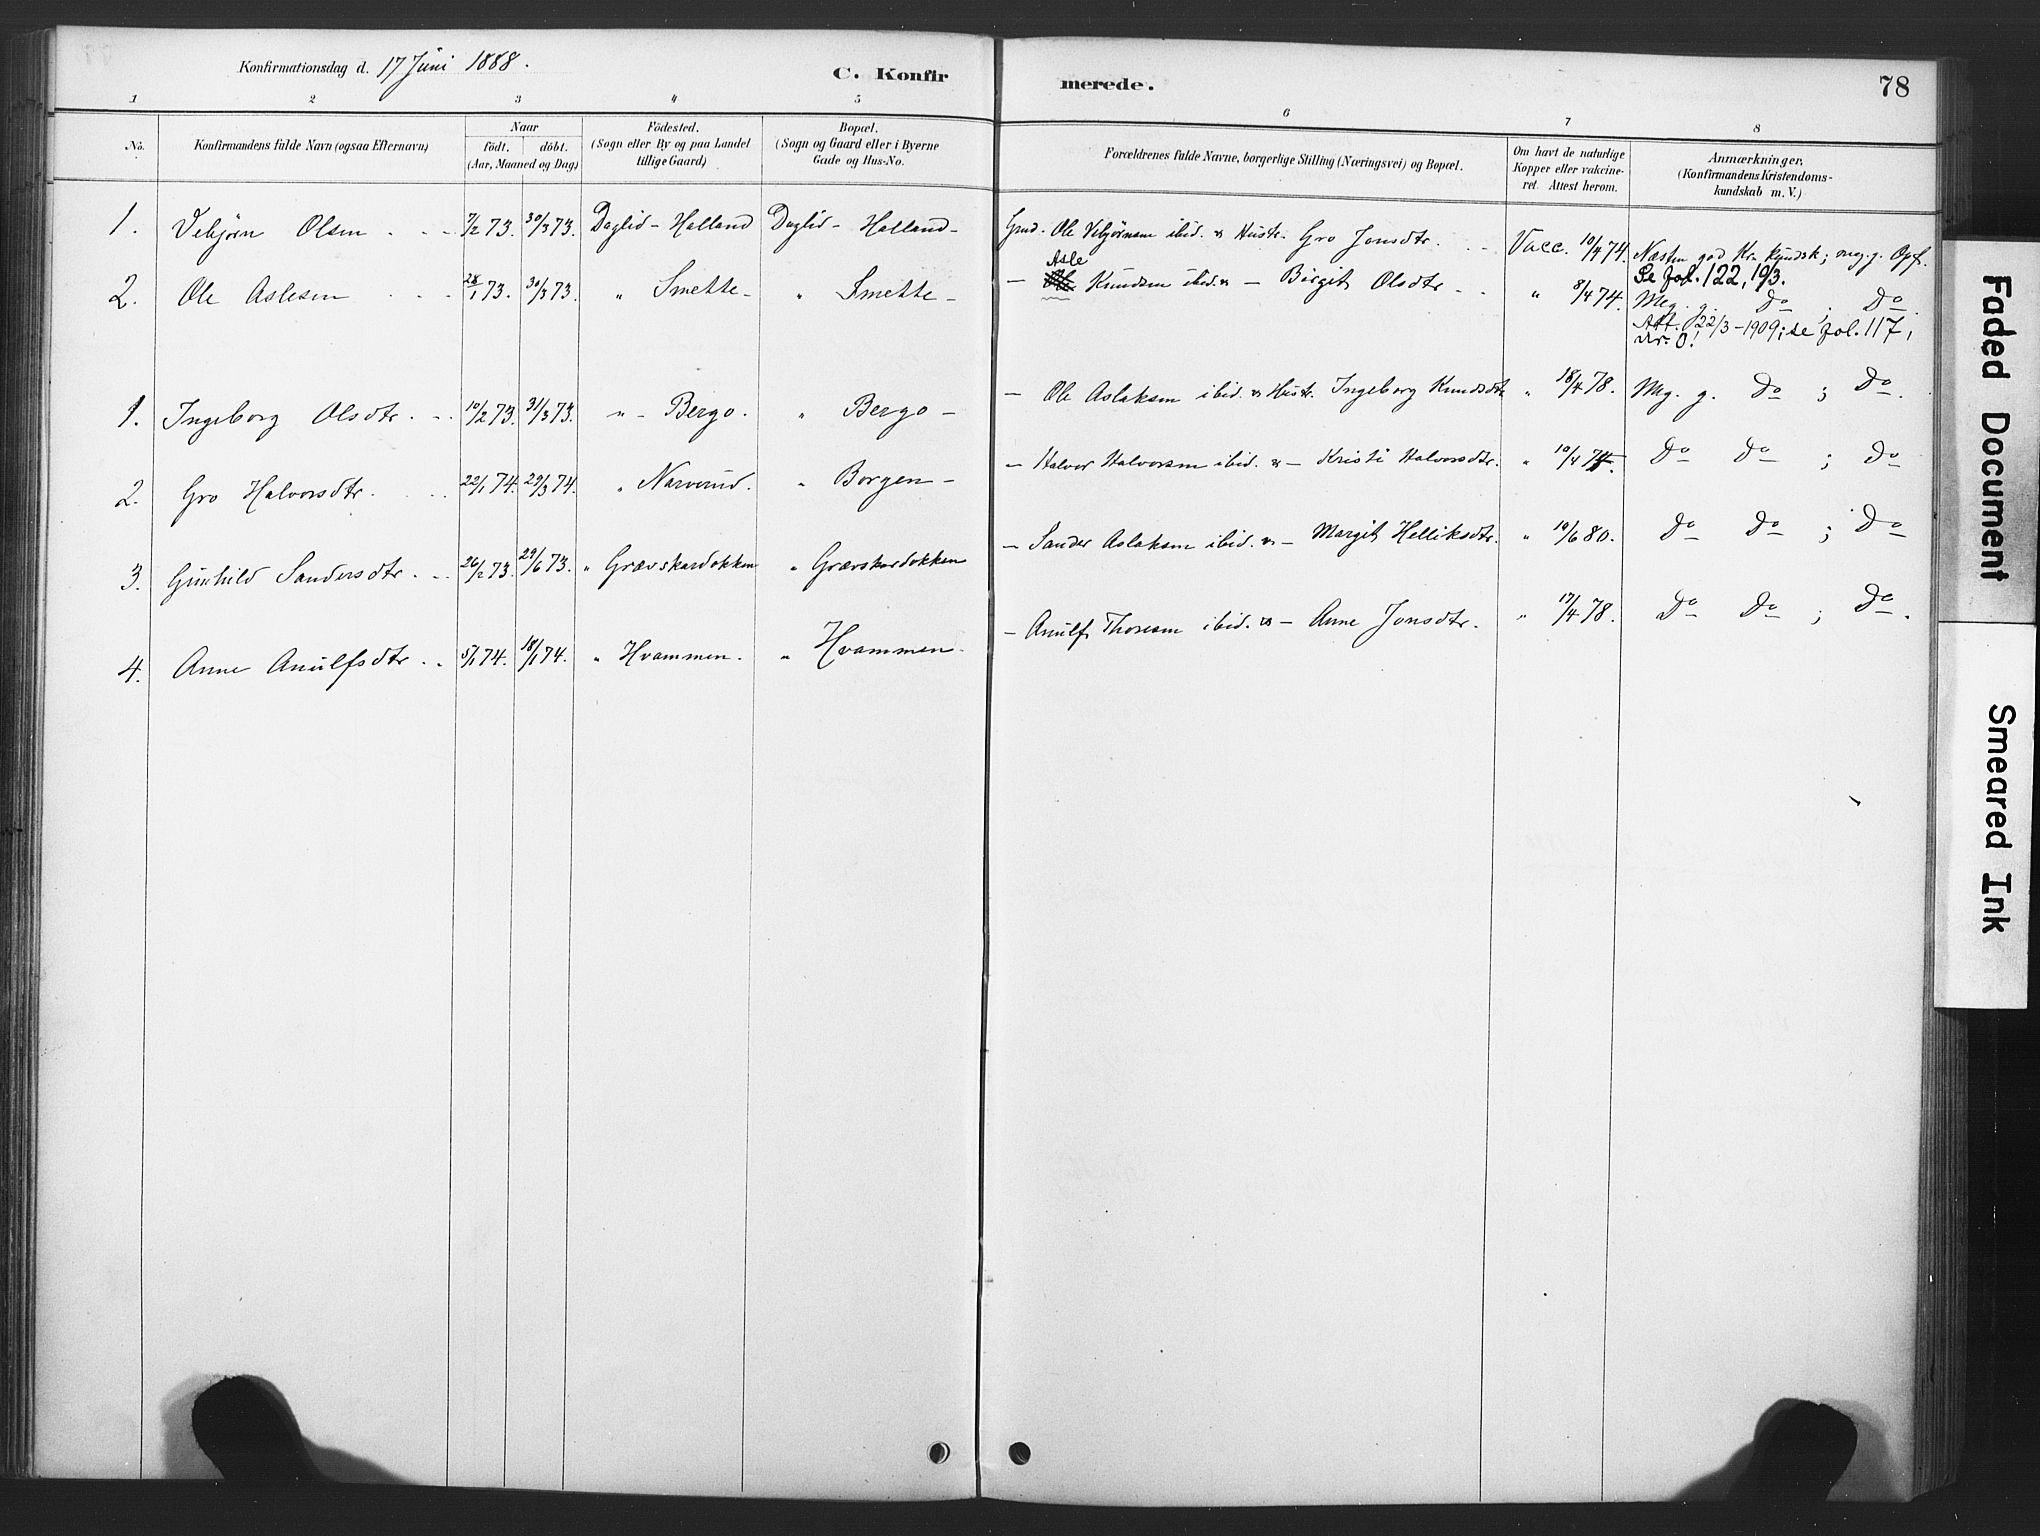 Konfirmationsdag d. 17 Juni 1888.
C. Konfir
merede.
78
1 2 3 4 5 6 7 8
No.
Konfirmandens fulde Navn (ogsaa Efternavn)
Naar
födt. döbt.
(Aar, Maaned og Dag)
Födested.
(Sogn eller By og paa Landet
tillige Gaard)
Bopæl.
(Sogn og Gaard eller i Byerne
Gade og Hus-No.
Forældrenes fulde Navne, borgerlige Stilling (Næringsvei) og Bopæl.
Om havt de naturlige
Kopper eller vakcine-
ret. Attest herom.
Anmærkninger.
(Konfirmandens Kristendoms-
kundskab m. V.)
1. Vebjörn Olsen . - - 7/2 73. 30/3 73. Daglid - Halland Daglid - Halland - Grmd. Ole Vebjörnsen ibid. & Hustr. Gro Jonsdtr. . - Vacc. 10/4 74. Næsten god Kr. kundsk; meg. g. Opf.
Se fol. 122, 193.
Asle
2. Ole Aslesen . . - 28/1 73. 30/3 73. " Smette - " Smette - - Knudsen ibid. & - Birgit Olsdtr - . " 8/4 74. Meg. g. Do ; Do
Att. 22/3 - 1909; se fol. 117,
nr. 0!
1. Ingeborg Olsdtr. . - 10/2 73. 31/3 73. " - Bergo. " Bergo - - Ole Aslaksen ibid. & Hustr. Ingeborg Knudsdtr " 18/4 78. Mg. g. Do ; Do.
2. Gro Halvorsdtr. . . 22/1 74. 29/3 74. " Narverud. " Borgen - - Halvor Halvorsen ibid. & - Kristi Halvorsdtr. " 10/4 75. Do Do ; Do
3. Gunhild Sandersdtr. . . 26/2 73. 29/6 73. " Grævskardokken " Grævskardokken - Sander Aslaksen ibid. & - Margit Helliksdtr. " 19/6 80. Do Do ; Do
4. Anne Anulfsdtr . . 5/1 74. 18/1 74. " Hvammen. " Hvammen. - Anulf Thoresen ibid. & - Anne Jonsdtr. " 17/4 78. Do Do ; Do.
Faded Document
Smeared Ink